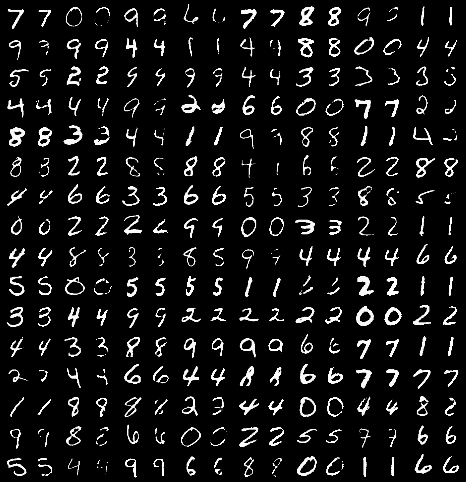 7 7 0 0 9 9 6 6 7 7 8 8 9 9 1 1
9 9 9 9 4 4 1 1 4 4 8 8 0 0 4 4
5 5 2 2 9 9 9 9 4 4 3 3 3 3 3 3
4 4 4 4 9 9 2 2 6 6 0 0 7 7 2 2
8 8 3 3 4 4 1 1 9 9 8 8 1 1 4
8 8 2 2 8 8 8 8 4 1 6 6 2 2 8 8
4 4 6 6 3 3 6 6 5 5 3 3 8 8 5 5
0 0 2 2 2 2 9 9 0 0 3 3 2 2 1 1
4 4 8 8 3 3 8 5 9 9 4 4 4 4 6 6
5 5 0 0 5 5 5 5 1 1 6 6 2 2 1 1
3 3 4 4 9 9 2 2 2 2 2 2 0 0 2 2
4 4 3 3 8 8 9 9 9 9 6 6 7 7 1 1
2 7 4 4 6 6 4 4 8 8 6 6 7 7 7 7
1 1 8 9 8 8 2 2 4 4 0 0 4 4 8 2
9 9 8 2 6 6 0 0 2 2 5 5 7 7 6 6
5 5 4 4 9 9 6 6 8 8 0 0 1 1 6 6